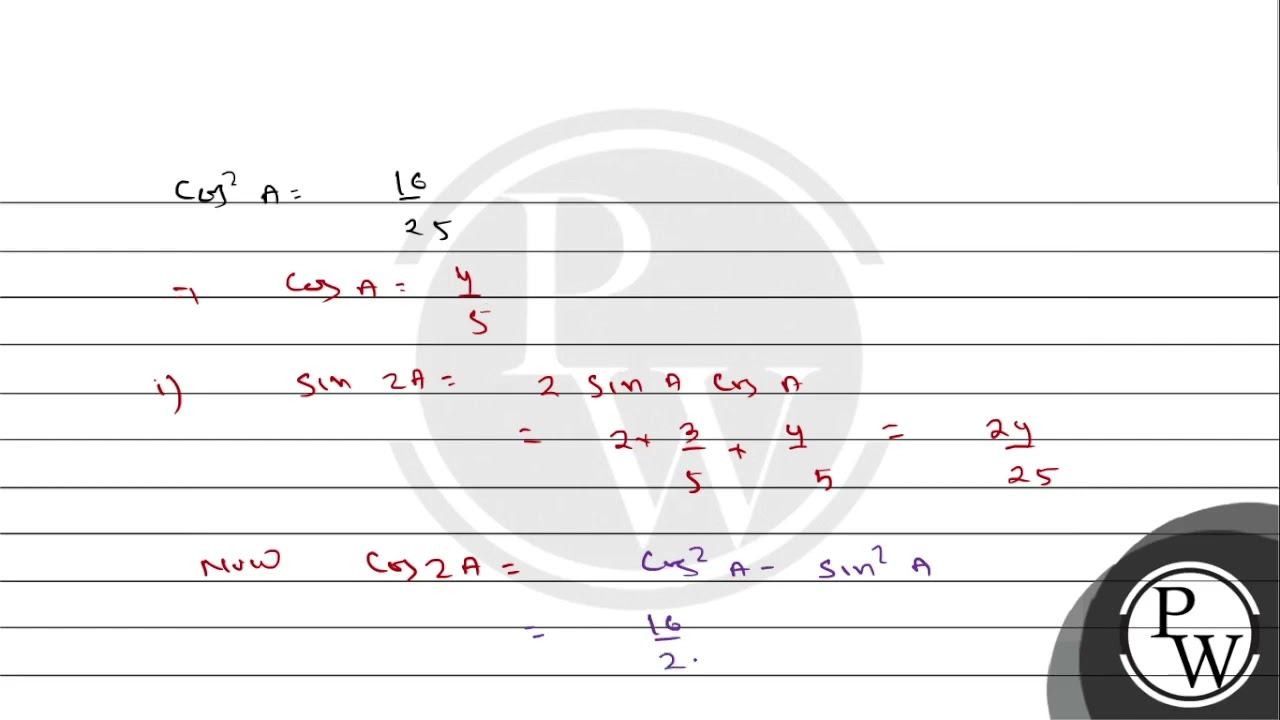 Cos² A = 16/25
⇒ Cos A = 4/5
i) Sin 2A = 2 Sin A Cos A
= 2 × 3/5 × 4/5 = 24/25
Now Cos 2A = Cos² A - Sin² A
= 16/2.
PW
PW